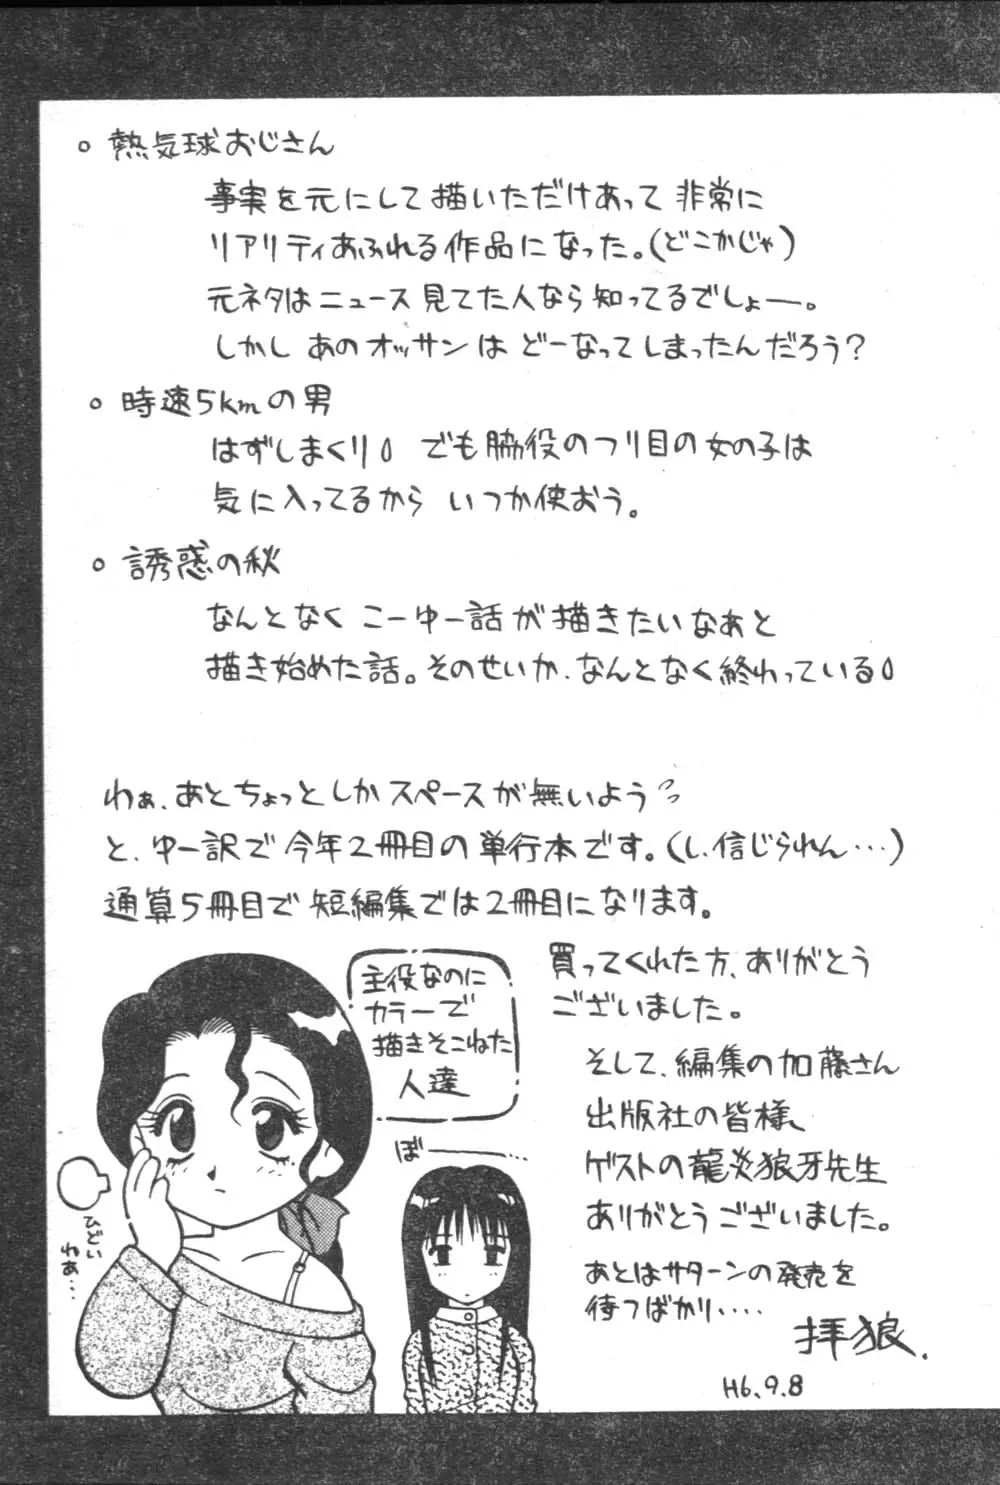 ○ 熱気球おじさん
事実を元にして描いただけあって 非常に
リアリティあふれる作品になった。(どこかじゃ)
元ネタはニュース見てた人なら知ってるでしょー。
しかし あのオッサンは どーなってしまったんだろう?
○ 時速5kmの男
はずしまくり でも脇役のつり目の女の子は
気に入ってるから いつか使おう。
○ 誘惑の秋
なんとなく こーゆー話が描きたいなぁと
描き始めた話。そのせいか、なんとなく終わっている
わぁ、あとちょっとしかスペースが無いよう
と、ゆー訳で今年2冊目の単行本です。(し、信じられん…)
通算5冊目で短編集では2冊目になります。
買ってくれた方、ありがとう
ございました。
そして、編集の加藤さん
出版社の皆様、
ゲストの龍炎狼牙先生
ありがとうございました。
あとはサターンの発売を
待つばかり‥‥
拝狼.
H6.9.8
主役なのに
カラーで
描きそこねた
人達
ぼー
ひどい
わぁ…